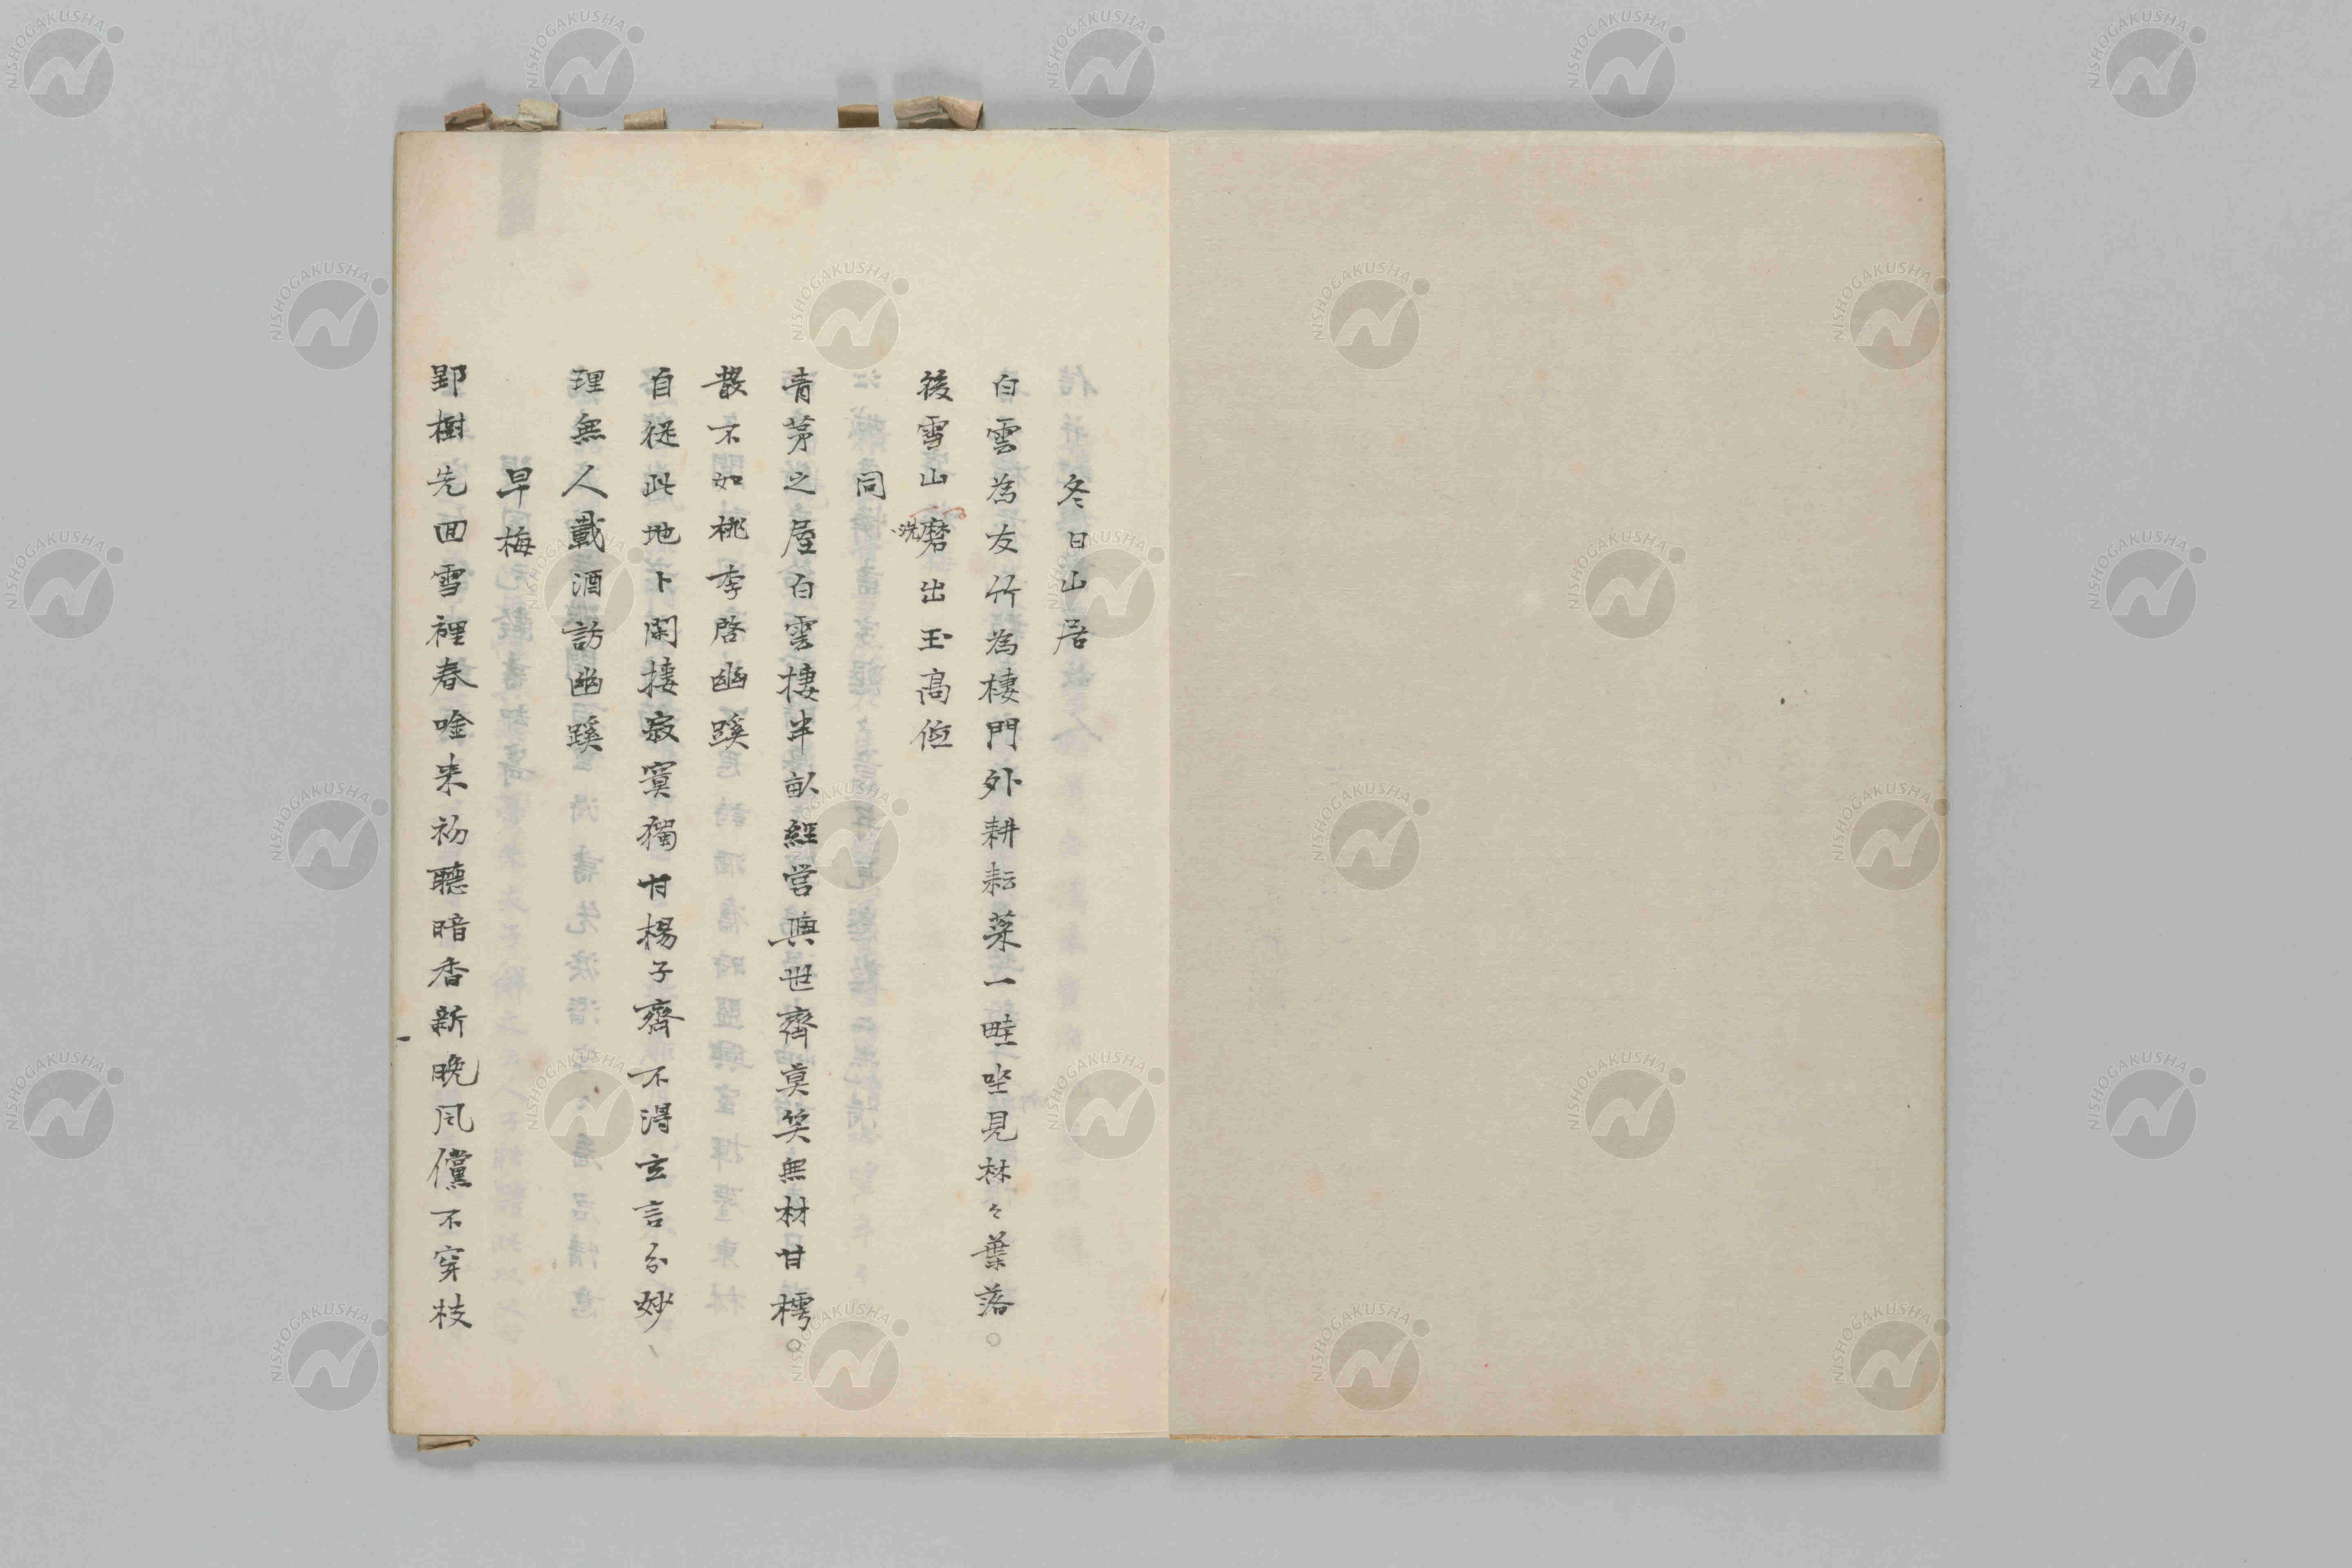 冬日山居
白雲為友竹為棲門外耕耘菜一畦坐見林々葉落。
後雪山磨出玉高低
洗
同
青茅之屋白雲棲半畝經営与世齊莫笑無材甘樗。
散不如桃李啓幽蹊
自從此地卜閑棲寂寞獨甘楊子齊不得玄言分妙、
理無人載酒訪幽蹊
早梅
野樹先回雪裡春唫来初聽暗香新晚风儻不穿枝
NISHOGAKUSHA